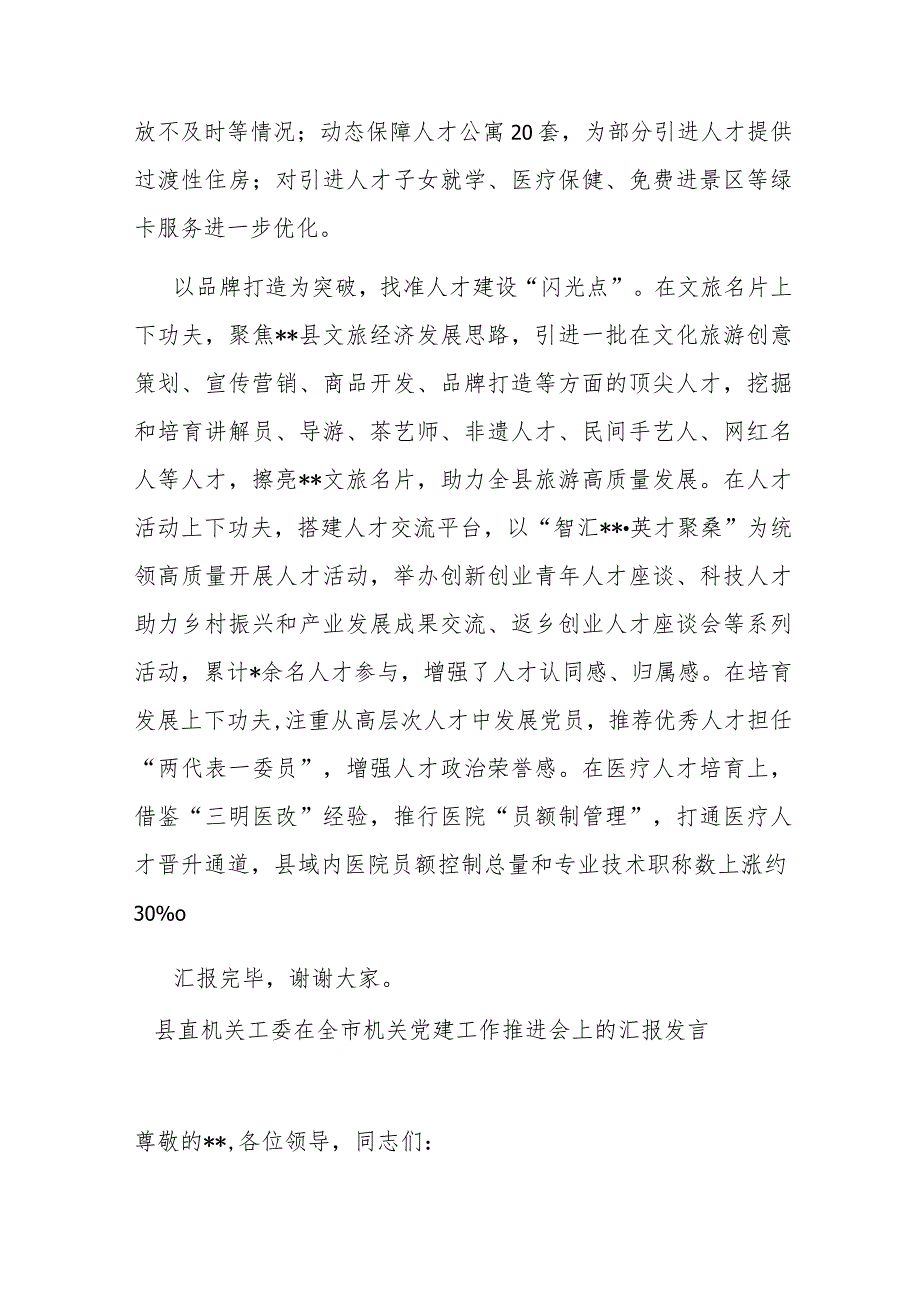 放不及时等情况；动态保障人才公寓20套，为部分引进人才提供
过渡性住房；对引进人才子女就学、医疗保健、免费进景区等绿
卡服务进一步优化。
以品牌打造为突破，找准人才建设“闪光点”。在文旅名片上
下功夫，聚焦**县文旅经济发展思路，引进一批在文化旅游创意
策划、宣传营销、商品开发、品牌打造等方面的顶尖人才，挖掘
和培育讲解员、导游、茶艺师、非遗人才、民间手艺人、网红名
人等人才，擦亮**文旅名片，助力全县旅游高质量发展。在人才
活动上下功夫，搭建人才交流平台，以“智汇**•英才聚桑”为统
领高质量开展人才活动，举办创新创业青年人才座谈、科技人才
助力乡村振兴和产业发展成果交流、返乡创业人才座谈会等系列
活动，累计*余名人才参与，增强了人才认同感、归属感。在培育
发展上下功夫,注重从高层次人才中发展党员，推荐优秀人才担任
“两代表一委员”，增强人才政治荣誉感。在医疗人才培育上，
借鉴“三明医改”经验，推行医院“员额制管理”，打通医疗人
才晋升通道，县域内医院员额控制总量和专业技术职称数上涨约
30%o
汇报完毕，谢谢大家。
县直机关工委在全市机关党建工作推进会上的汇报发言
尊敬的**,各位领导，同志们：